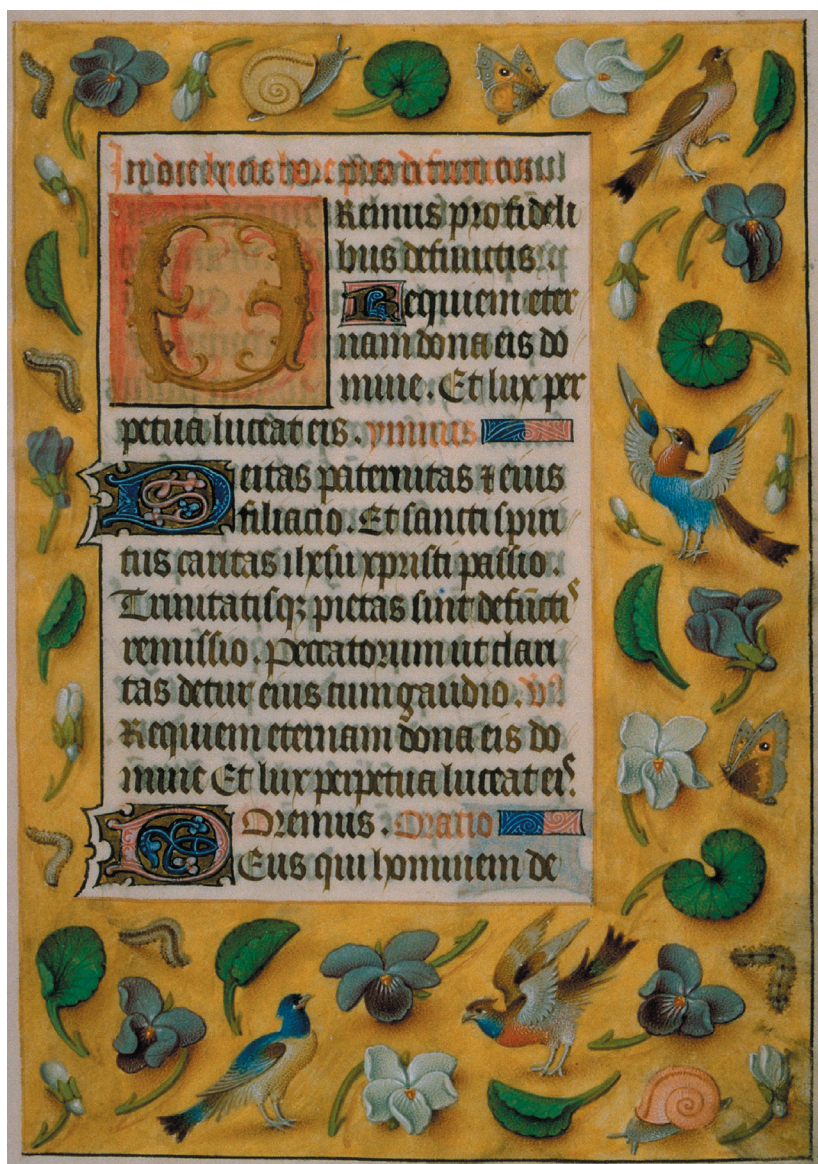 Remus pro fideli
bus defunctis.
Requiem eter
nam dona eis do
mine. Et lux per
petua luceat eis. ymnus
Deitas paternitas ⁊ eius
filiacio. Et sancti spiri
tus caritas ihesu xpristi passio.
Trinitatisqꝫ pietas sint defūctis
remissio. Peccatorum ut clari
tas detur eius cum gaudio.
Requiem eternam dona eis do
mine Et lux perpetua luceat eis.
Oremus. Oratio
Deus qui hominem de